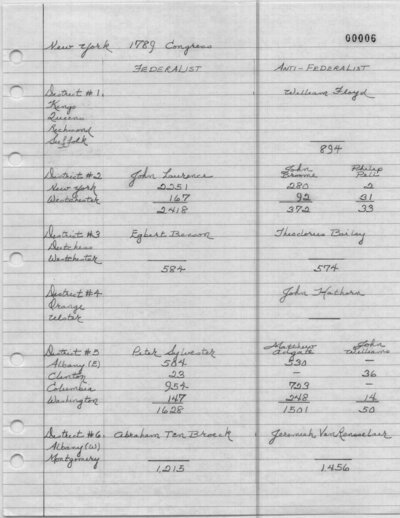 00006
New York 1789 Congress
FEDERALIST ANTI-FEDERALIST
District #1. William Floyd
Kings
Queens
Richmond
Suffolk
894
John Philip
District #2 John Laurence Broome Pell
New York 2251 280 2
Westchester 167 92 31
2418 372 33
District #3 Egbert Benson Theodorus Bailey
Dutchess
Westchester
584 574
District #4 John Hathorn
Orange
Ulster
Matthew John
District #5 Peter Sylvester Adgate Williams
Albany (E) 504 530 –
Clinton 23 – 36
Columbia 954 723 –
Washington 147 248 14
1628 1501 50
District #6. Abraham Ten Broeck Jeremiah Van Rensselaer
Albany (W)
Montgomery
1,215 1,456